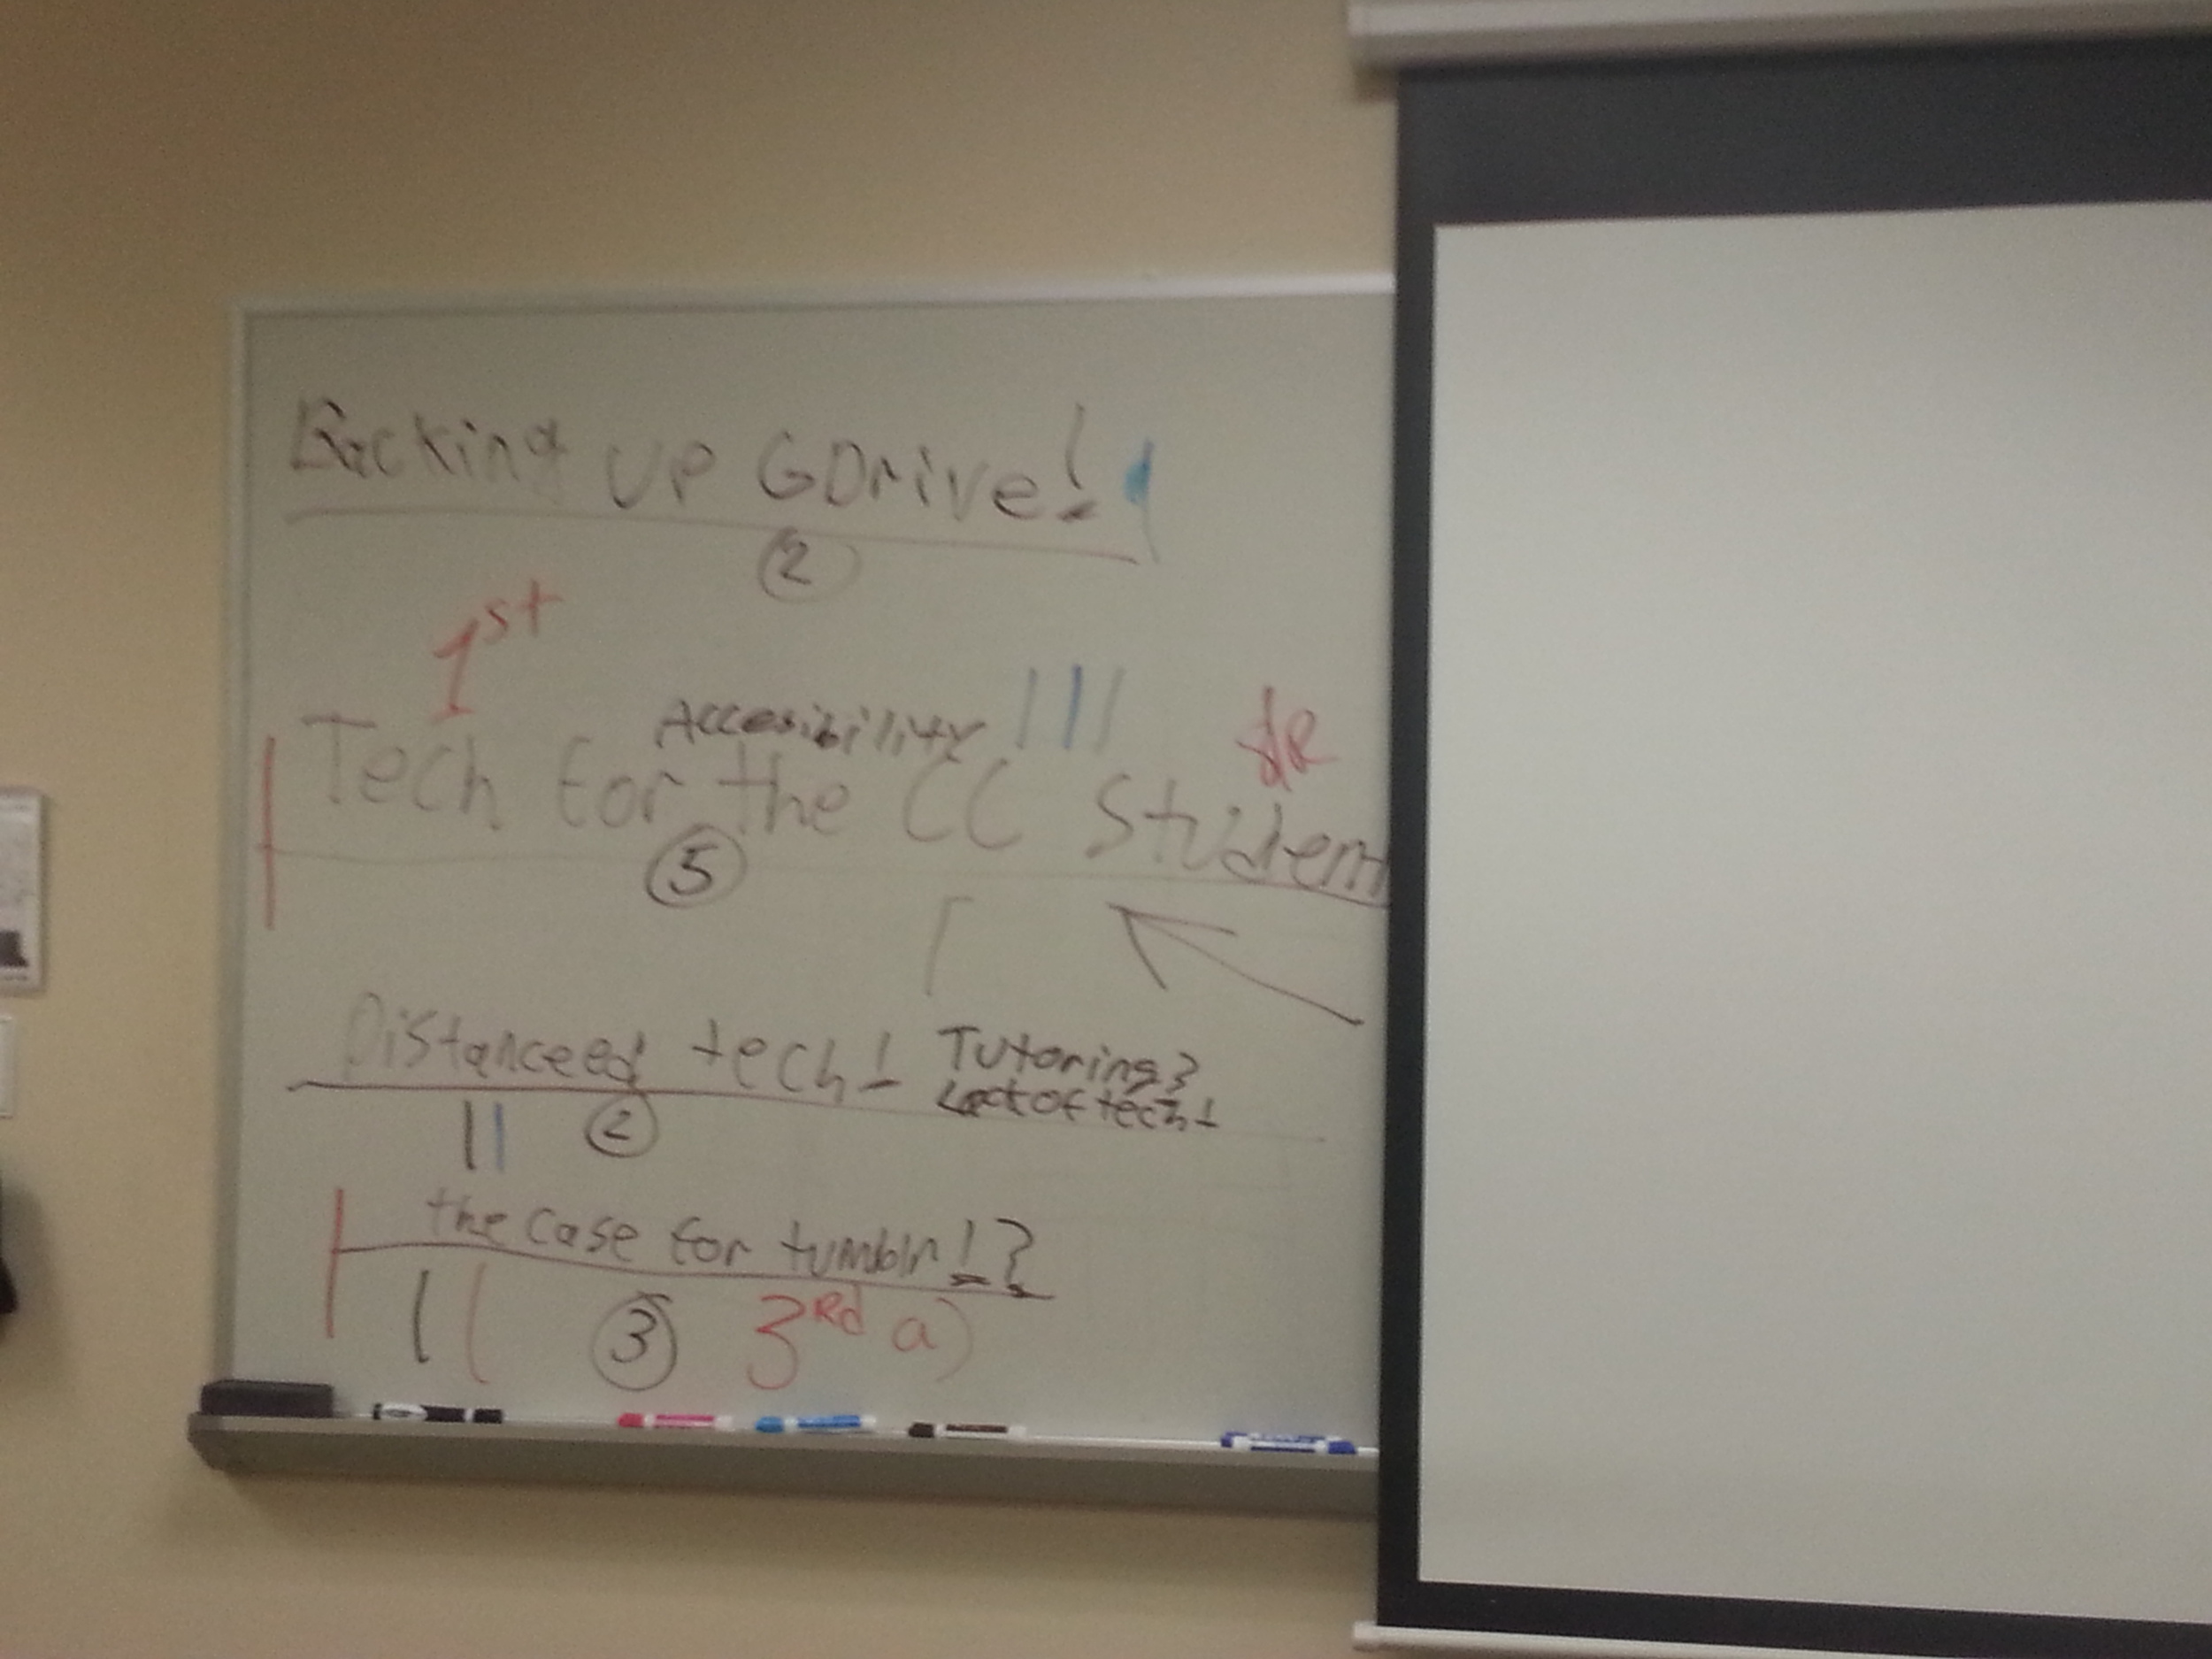 Backing up GDrive!
2
1st
Accesibility
dR
Tech for the CC Studen
5
Distanceed tech! Tutoring?
Lack of tech!
2
the case for tumblr!?
3 3Rd a)